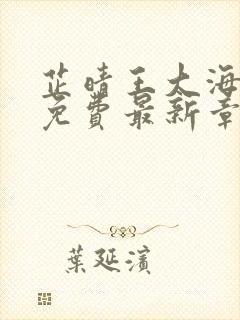 芷晴王大海
免費最新章
葉延濱